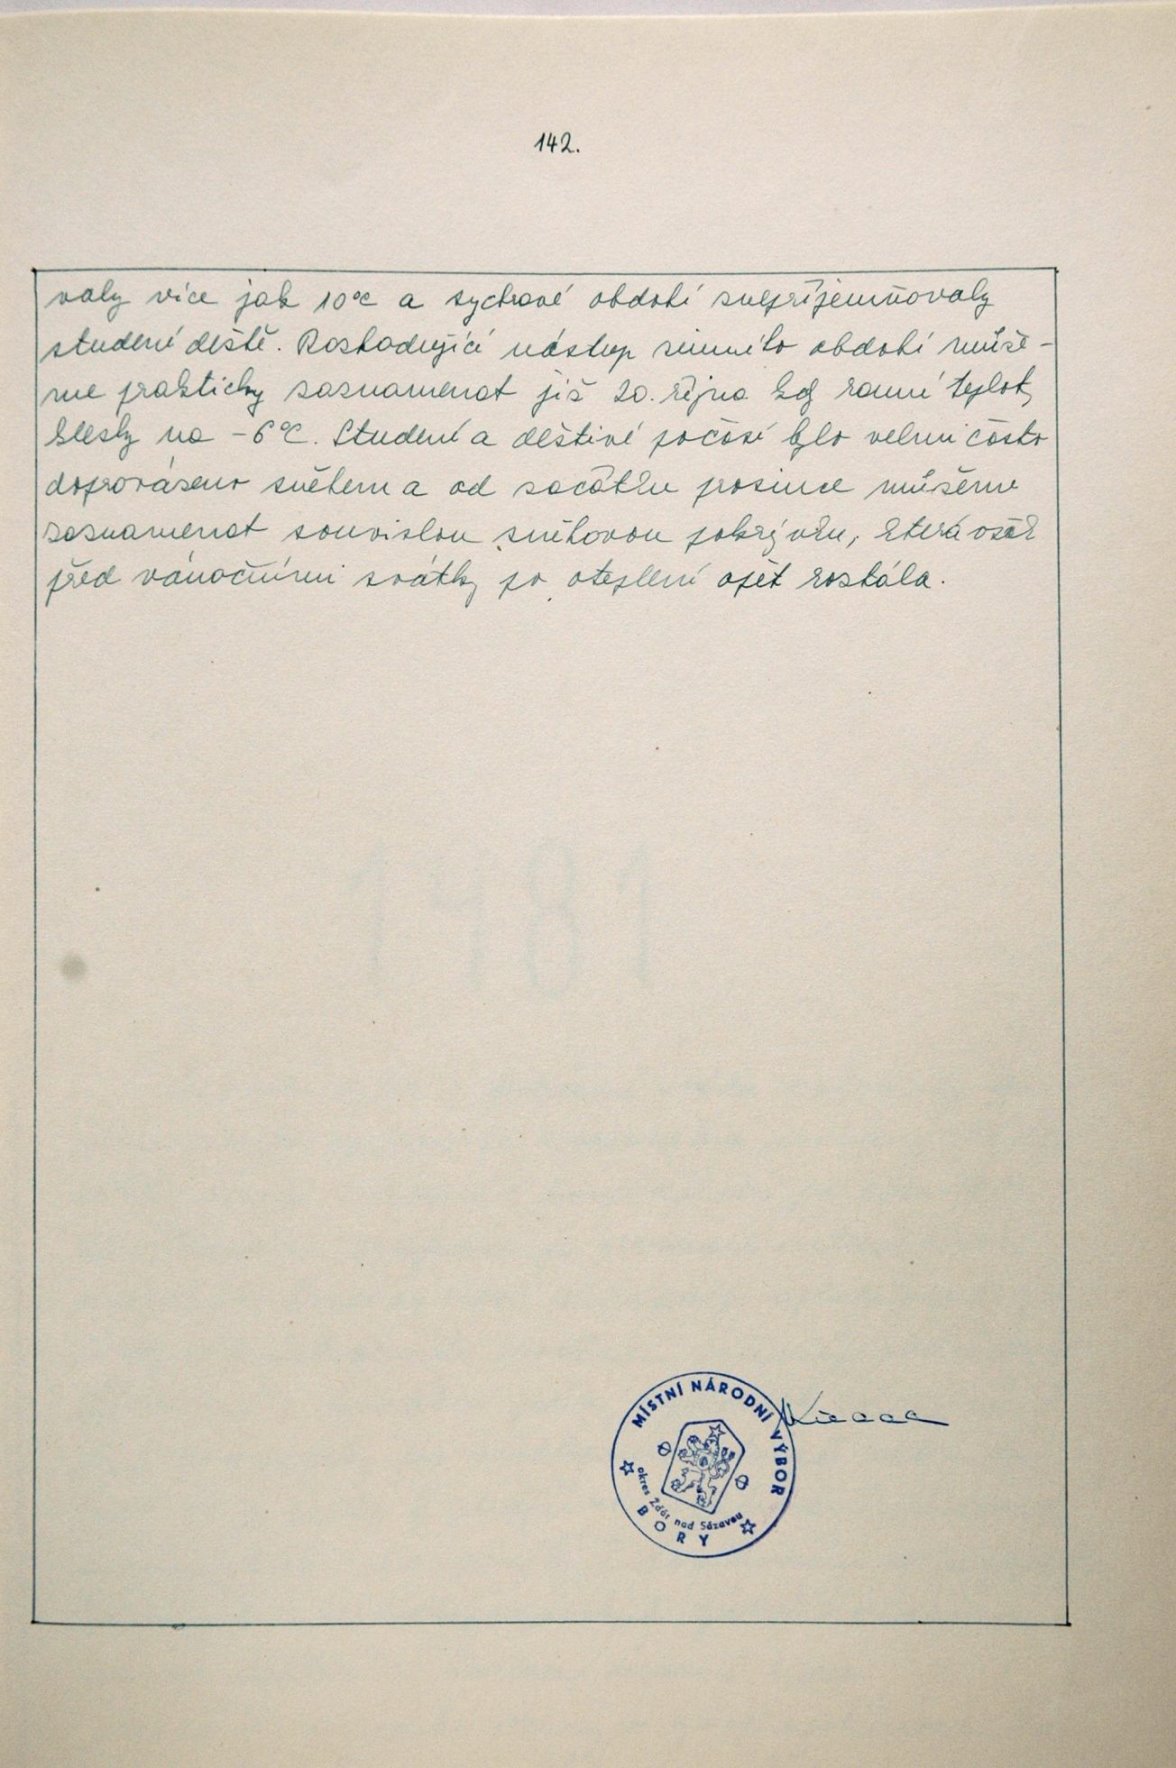 142.
valy více jak 10°C a sychravé období znepříjemňovaly
studené deště. Rozhodující nástup zimního období může-
me prakticky zaznamenat již 20. října kdy ranní teploty
klesly na -6°C. Studené a deštivé počásí bylo velmi často
doprovázeno sněhem a od začátku prosince můžeme
zaznamenat souvislou sněhovou pokrývku, která však
před vánočními svátky po oteplení opět roztála.
MÍSTNÍ NÁRODNÍ VÝBOR
okres Žďár nad Sázavou
BORY